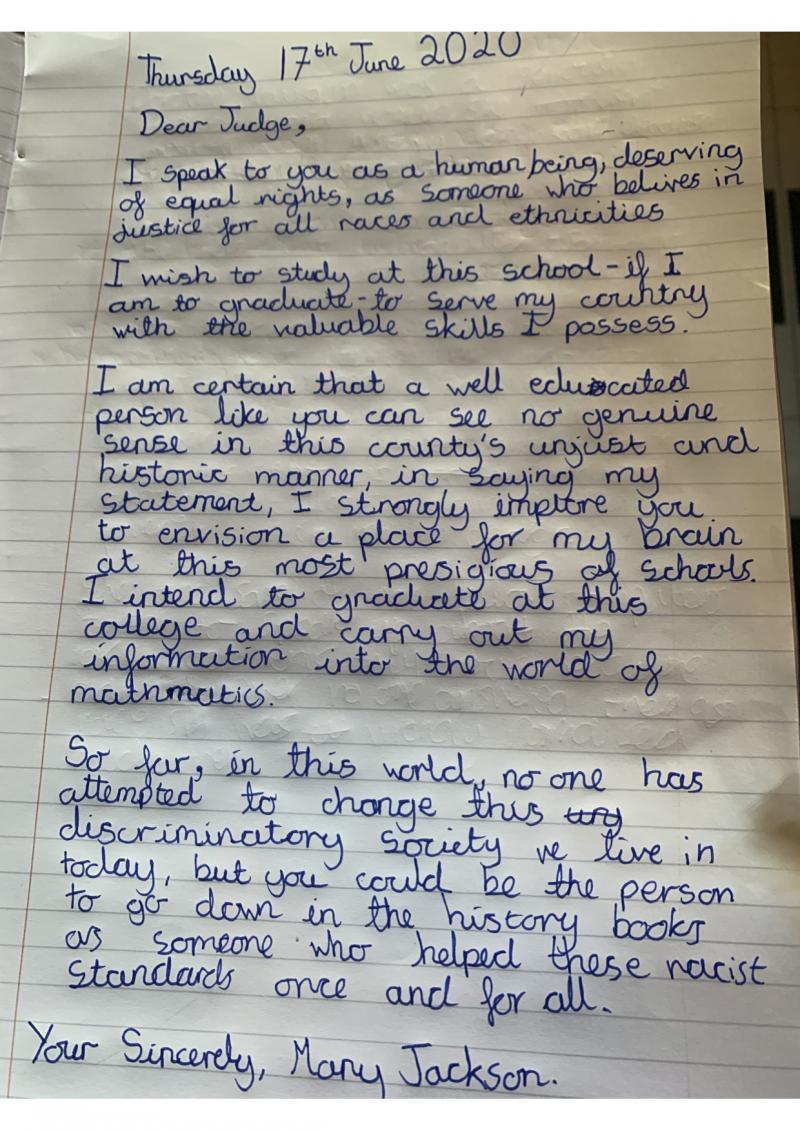 Thursday 17th June 2020
Dear Judge,
I speak to you as a human being, deserving
of equal rights, as someone who belives in
justice for all races and ethnicities
I wish to study at this school - if I
am to graduate - to serve my country
with the valuable skills I possess.
I am certain that a well educated
person like you can see no genuine
sense in this county's unjust and
historic manner, in saying my
statement, I strongly implore you
to envision a place for my brain
at this most presigious of schools.
I intend to graduate at this
college and carry out my
information into the world of
mathmatics.
So far, in this world, no one has
attempted to change this
discriminatory society we live in
today, but you could be the person
to go down in the history books
as someone who helped these racist
standards once and for all.
Your Sincerely, Mary Jackson.